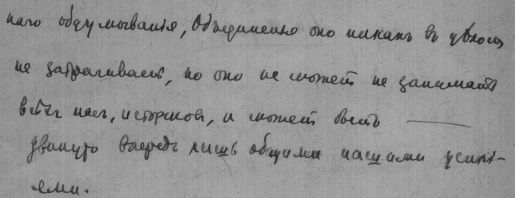 наго обдумыванія, Объединенію оно никакъ въ
не затрагиваетъ, но оно не можетъ не занимать
всѣхъ насъ, историковъ, и можетъ быть ———
двинуто впередъ лишь общими нашими усилі-
ями.